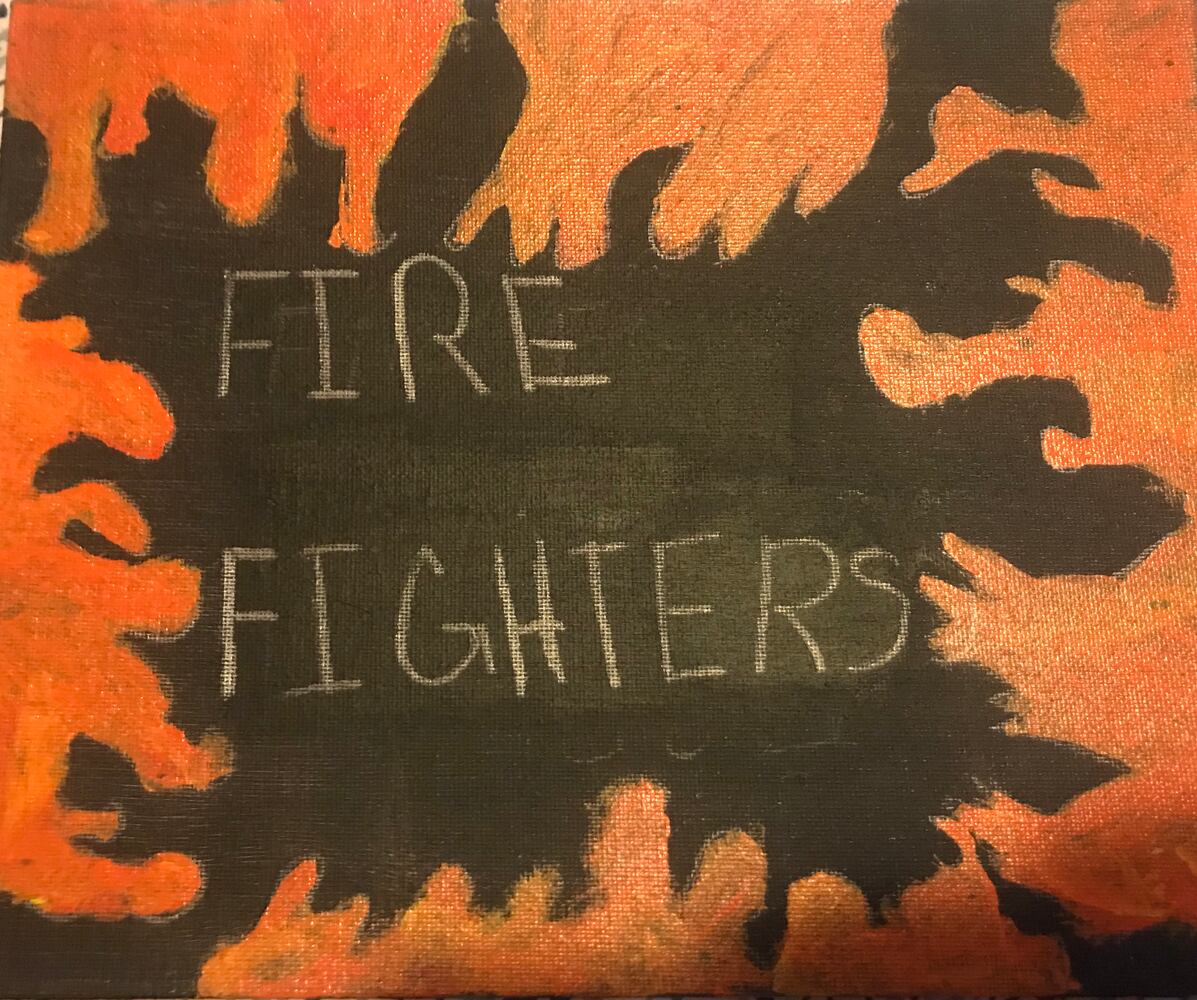 FIRE
FIGHTERS